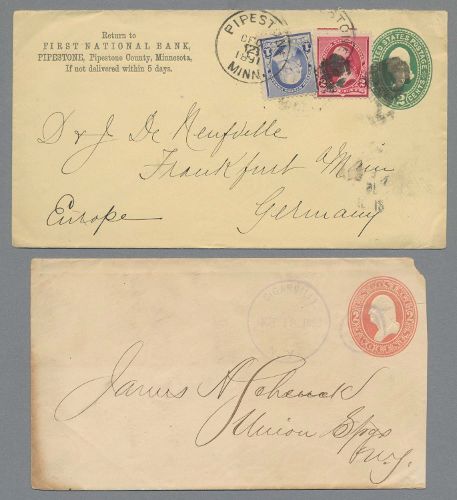 Return to
FIRST NATIONAL BANK,
PIPESTONE, Pipestone County, Minnesota,
If not delivered within 5 days.
PIPEST
DEC
12
1891
MINN.
UNITED STATES POSTAGE
2 CENTS
D & J De Neufville
Frankfurt a/Main
Europe Germany
U.S. POSTAGE
James A. Schenck
Union Spgs
N.Y.